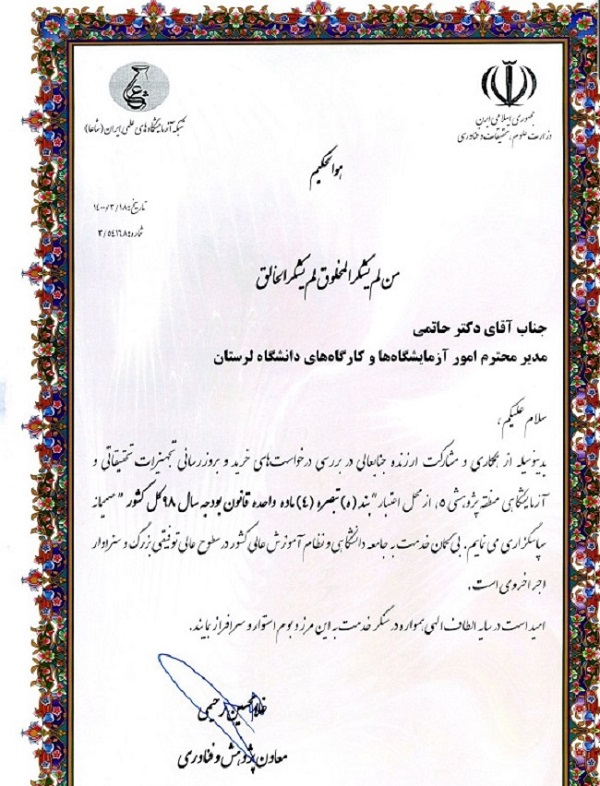 جمهوری اسلامی ایران
وزارت علوم، تحقیقات و فناوری
شبکه آزمایشگاه‌های علمی ایران (شاعا)
هو الحکیم
تاریخ: ۱۴۰۰/۳/۱۸
شماره: ۳/۵۴۱۶۸
من لم یشکر المخلوق لم یشکر الخالق
جناب آقای دکتر حاتمی
مدیر محترم امور آزمایشگاه‌ها و کارگاه‌های دانشگاه لرستان
سلام علیکم،
بدینوسیله از همکاری و مشارکت ارزنده جنابعالی در بررسی درخواست‌های خرید و بروزرسانی تجهیزات تحقیقاتی و
آزمایشگاهی منطقه پژوهشی ۵، از محل اعتبار "بند (ه) تبصره (۴) ماده واحده قانون بودجه سال ۹۸ کل کشور" صمیمانه
سپاسگزاری می نمایم. بی گمان خدمت به جامعه دانشگاهی و نظام آموزش عالی کشور در سطوح عالی توفیقی بزرگ و سزاوار
اجر اخروی است.
امید است در سایه الطاف الهی همواره در سنگر خدمت به این مرز و بوم استوار و سرافراز بمانید.
غلامحسین رحیمی
معاون پژوهش و فناوری